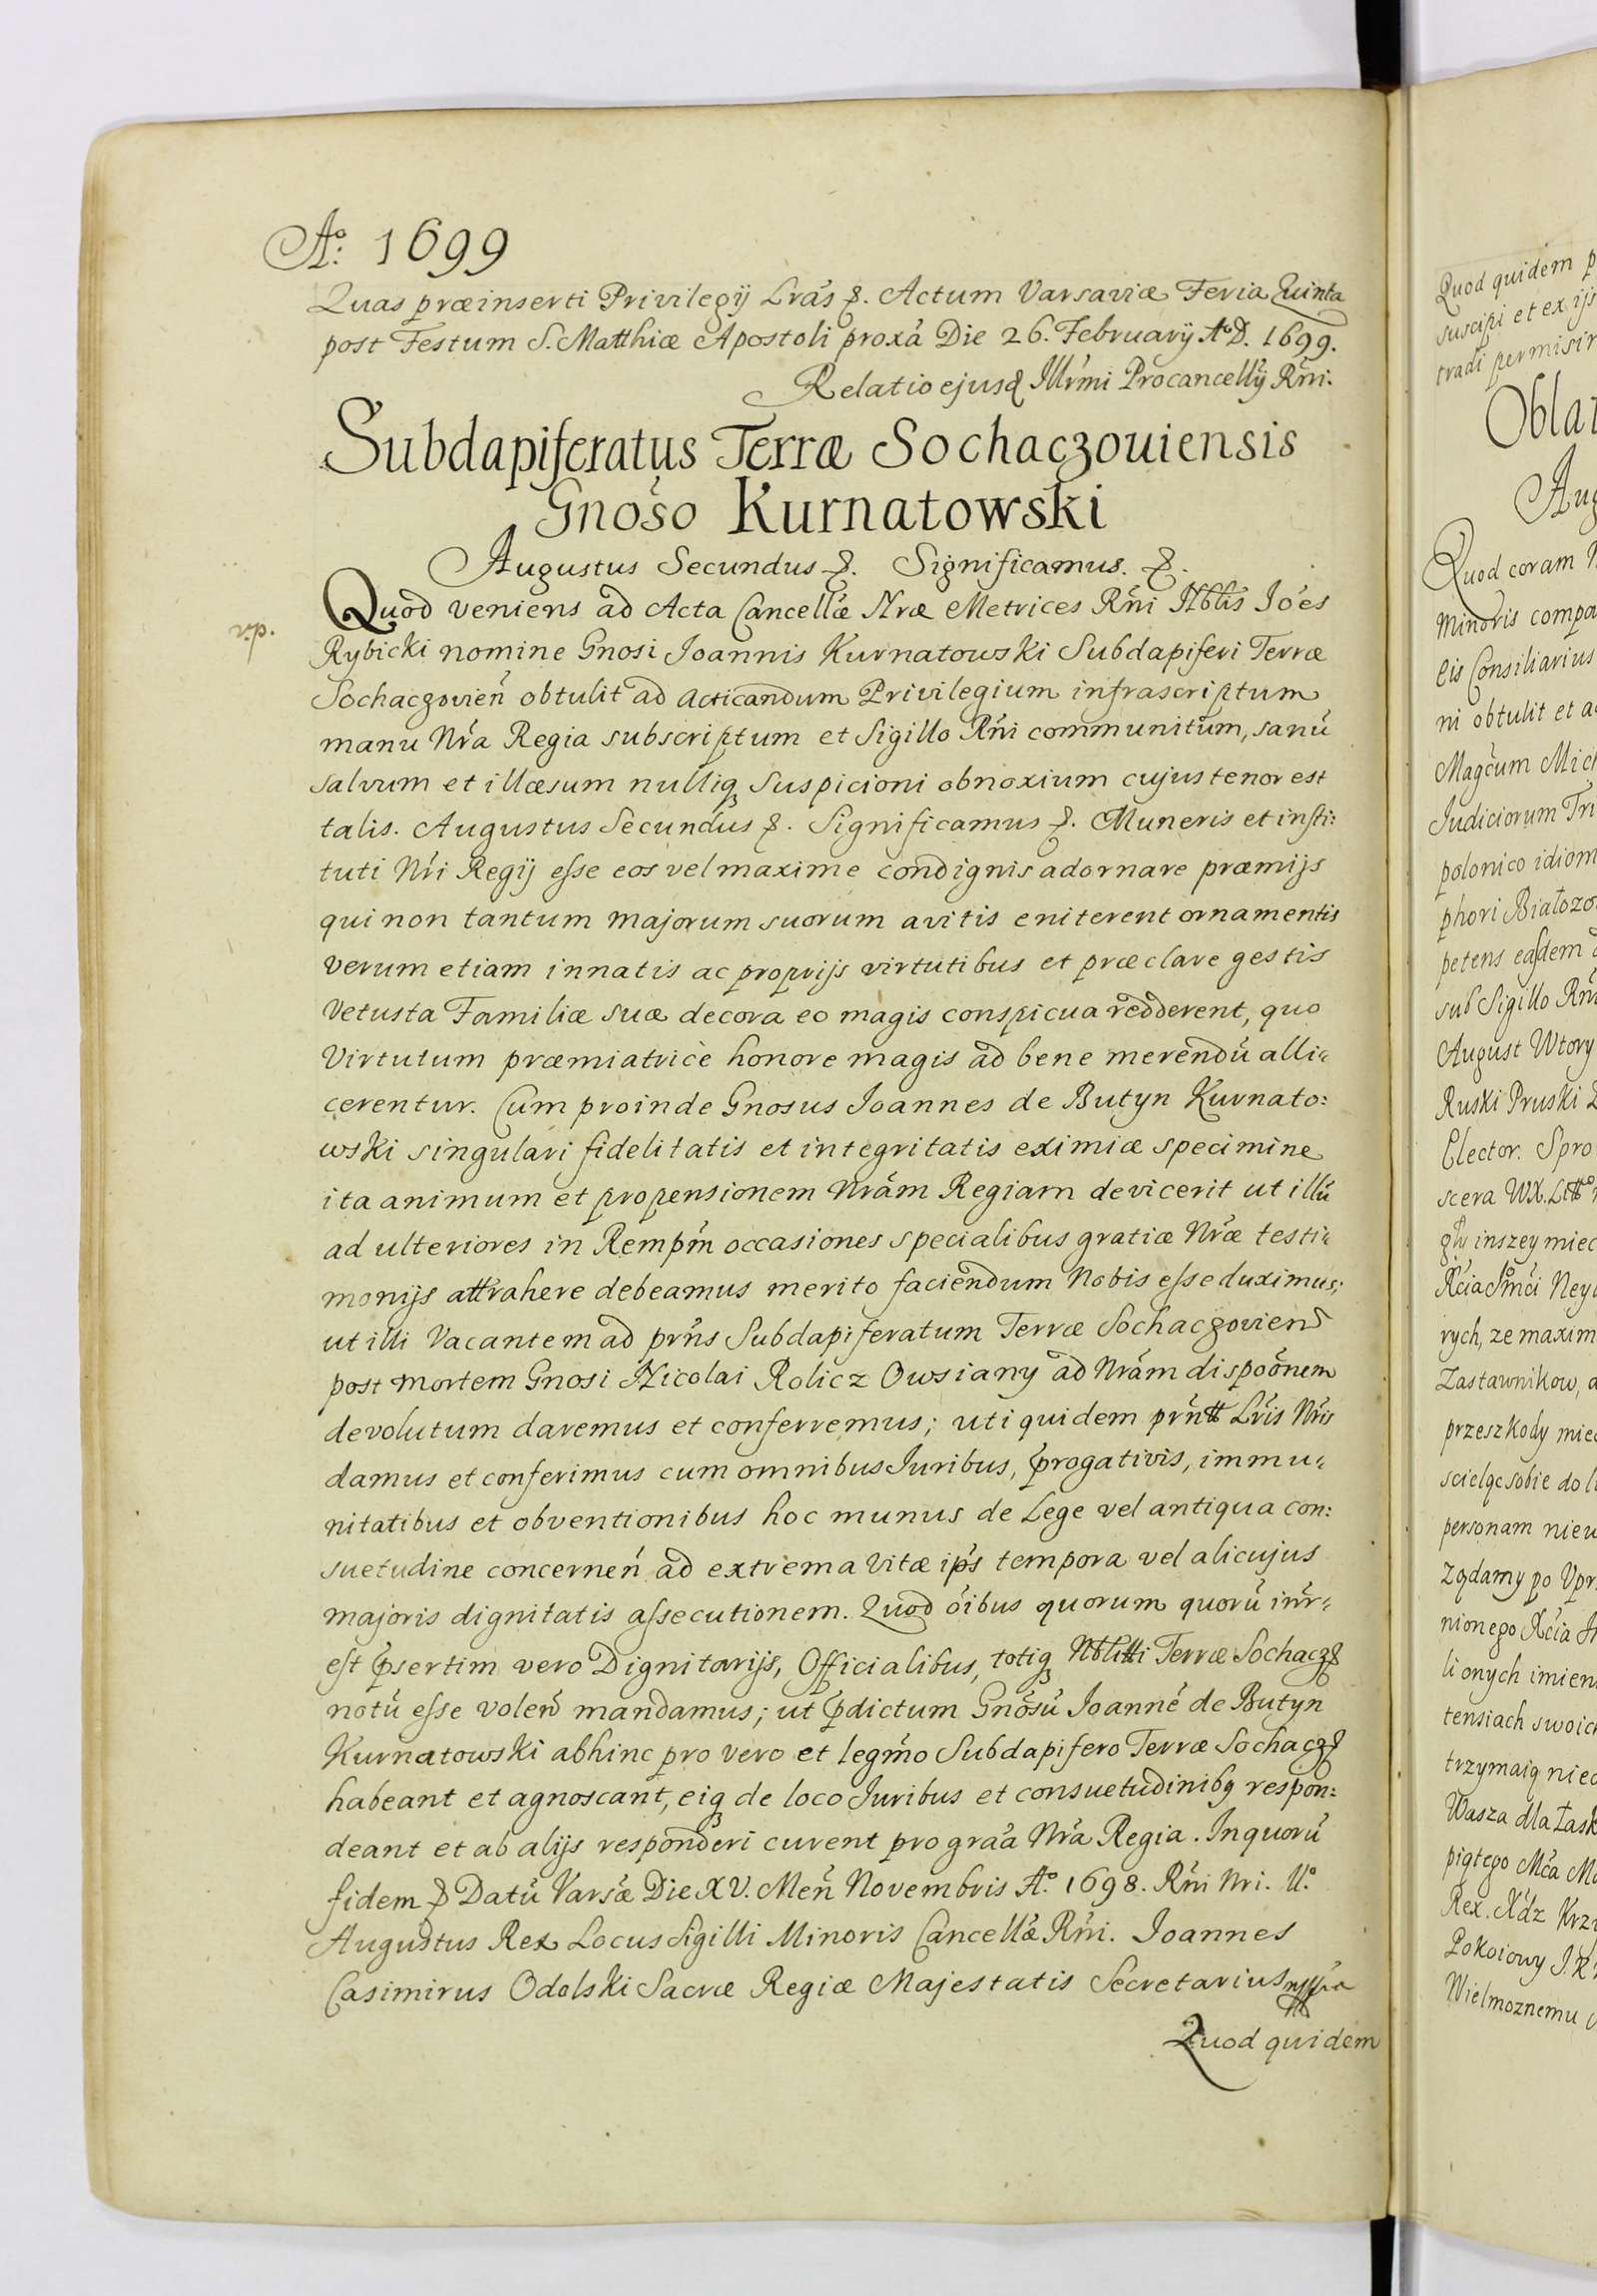 Aº. 1699
Quas præinserti Privilegij Lrás &. Actum Varsaviæ Feria Quinta
post Festum S. Matthiæ Apostoli proxá Die 26. Februarij Aº D. 1699.
Relatio ejusd Illrmi Procancellij Rńi.
Subdapiferatus Terræ Sochaczoviensis
Gnoso Kurnatowski
Augustus Secundus &. Significamus. &.
v.p.
Quod veniens ad Acta Cancellæ Nræ Metrices Rńi Nblis Joés
Rybicki nomine Gnosi Joannis Kurnatowski Subdapiferi Terræ
Sochaczovień obtulit ad acticandum Privilegium infrascriptum
manu Nrá Regia subscriptum et Sigillo Rńi communitum, sanú
salvum et illæsum nulliq suspicioni obnoxium cujus tenor est
talis. Augustus Secundus &. Significamus &. Muneris et insti:
tuti Nri Regij esse eos vel maxime condignis adornare præmijs
qui non tantum majorum suorum avitis eniterent ornamentis
verum etiam innatis ac proprijs virtutibus et præclare gestis
vetusta Familiæ suæ decora eo magis conspicua redderent, quo
Virtutum præmiatrice honore magis ad bene merendú alli=
cerentur. Cum proinde Gnosus Joannes de Butyn Kurnato:
wski singulari fidelitatis et integritatis eximiæ specimine
ita animum et propensionem Nrám Regiam devicerit ut illú
ad ulteriores in Rempm occasiones specialibus gratiæ Nræ testi=
monijs attrahere debeamus merito faciendum Nobis esse duximus;
ut illi Vacantem ad prńs Subdapiferatum Terræ Sochaczovien
post mortem Gnosi Nicolai Rolicz Owsiany ad Nrám dispoónem
devolutum daremus et conferremus; uti quidem prńtt Lris Nris
damus et conferimus cum omnibus Juribus, progativis, immu=
nitatibus et obventionibus hoc munus de Lege vel antiqua con:
suetudine concerneń ad extrema vitæ ips tempora vel alicujus
majoris dignitatis assecutionem. Quod óibus quorum quorú inr=
est psertim vero Dignitarijs, Officialibus, totiq Nblitti Terræ Sochacz
notú esse voleń mandamus; ut pdictum Gnosú Joanné de Butyn
Kurnatowski abhinc pro vero et legmo Subdapifero Terræ Sochacz
habeant et agnoscant, eiq de loco Juribus et consuetudinibq respon:
deant et ab alijs responderi curent pro graá Nrá Regia. In quorú
fidem & Datú Varsæ Die XV. Meń Novembris Aº. 1698. Rńi Nri. IIº.
Augustus Rex Locus Sigilli Minoris Cancellæ Rńi. Joannes
Casimirus Odolski Sacræ Regiæ Majestatis Secretarius mppria
Quod quidem
Quod quidem p
suscipi et ex ijs
tradi permisir
Oblat
Aug
Quod coram N
Minoris compa
eis Consiliarius
ni obtulit et a
Magcum Mich
Judiciorum Tri
polonico idiom
phori Białozo
petens easdem
sub Sigillo Rńi
August Wtory
Ruski Pruski
Elector. Spro
scera WX. Litto
gdy inszey miec
Xcia Jmci Ney
rych, ze maxim
Zastawnikow, a
przeszkody mie
scielqc sobie do
personam niew
Zqdamy po Upr
nionego Xcia
li onych imien
tensiach swoich
trzymaiq nie
Wasza dla Łask
piqtego Mca Ma
Rex. Xdz Krz
Pokoiowy J.K
Wielmoznemu